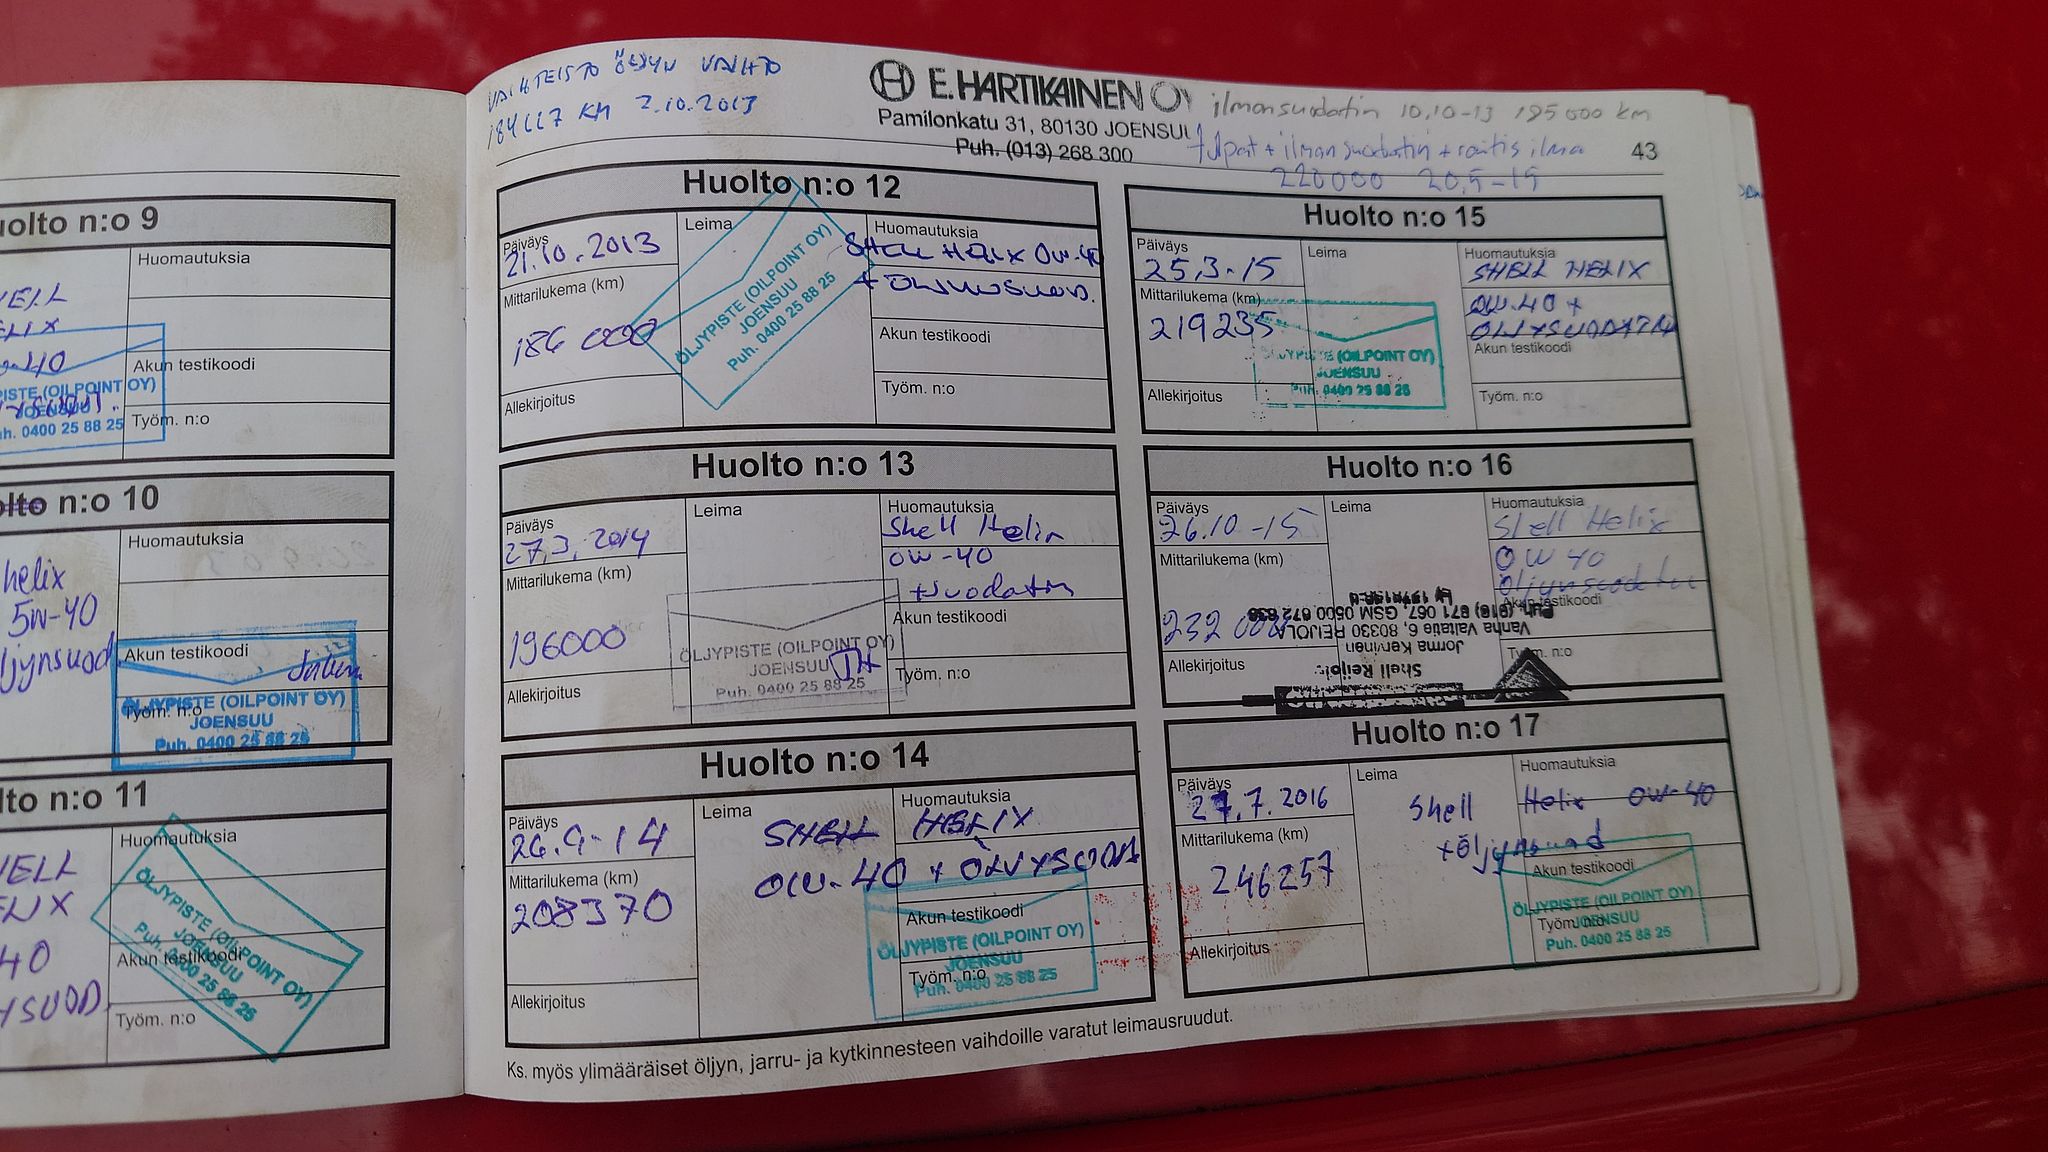 uolto n:o 9
Huomautuksia
ELIX
Akun testikoodi
PISTE (OILPOINT OY)
JOENSUU
uh. 0400 25 88 25
Työm. n:o
olto n:o 10
Huomautuksia
helix
5W-40
öljynsuod
Akun testikoodi
ÖLJYPISTE (OILPOINT OY)
Työm. n:o
JOENSUU
Puh. 0400 25 88 25
lto n:o 11
Huomautuksia
40
Akun testikoodi
ÖLJYPISTE (OILPOINT OY)
JOENSUU
Puh. 0400 25 88 25
Työm. n:o
VAIHTEISTO ÖLJYN VAIHTO
KM 2.10.2013
E. HARTIKAINEN OY
Pamilonkatu 31, 80130 JOENSUU
Puh. (013) 268 300
ilmansuodatin 10.10-13 185000 km
+ ilmansuodatin + raitis ilma
220000 20.5-15
43
Huolto n:o 12
Päiväys
21.10.2013
Mittarilukema (km)
186 000
Allekirjoitus
Leima
ÖLJYPISTE (OILPOINT OY)
JOENSUU
Puh. 0400 25 88 25
Huomautuksia
SHELL HELIX 0W-40
+ ÖLJYNSUOD.
Akun testikoodi
Työm. n:o
Huolto n:o 13
Päiväys
27.3.2014
Mittarilukema (km)
196000
Allekirjoitus
Leima
ÖLJYPISTE (OILPOINT OY)
JOENSUU
Puh. 0400 25 88 25
Huomautuksia
Shell Helix
0W-40
+suodatin
Akun testikoodi
Työm. n:o
Huolto n:o 14
Päiväys
26.9-14
Mittarilukema (km)
208370
Allekirjoitus
Leima
Huomautuksia
SHELL HELIX
0W-40 + ÖLJYSUODA
Akun testikoodi
ÖLJYPISTE (OILPOINT OY)
JOENSUU
Työm. n:o
Puh. 0400 25 88 25
Huolto n:o 15
Päiväys
25.3-15
Mittarilukema (km)
219235
Allekirjoitus
Leima
ÖLJYPISTE (OILPOINT OY)
JOENSUU
Puh. 0400 25 88 25
Huomautuksia
SHELL HELIX
0W-40 +
ÖLJYSUODATIN
Akun testikoodi
Työm. n:o
Huolto n:o 16
Päiväys
26.10-15
Mittarilukema (km)
232 000
Allekirjoitus
Leima
Huomautuksia
Shell Helix
0W 40
Öljynsuodatin
Akun testikoodi
Työm. n:o
Jorma Karvinen
Vanha Valtatie 6, 80330 REIJOLA
Huolto n:o 17
Päiväys
27.7.2016
Mittarilukema (km)
246257
Allekirjoitus
Leima
Huomautuksia
Shell Helix 0W-40
+öljynsuod
Akun testikoodi
ÖLJYPISTE (OILPOINT OY)
Työm. n:o
JOENSUU
Puh. 0400 25 88 25
Ks. myös ylimääräiset öljyn, jarru- ja kytkinnesteen vaihdoille varatut leimausruudut.